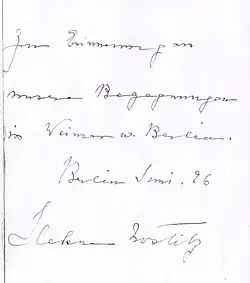 Zur Erinnerung an
unsere Begegnungen
in Weimar u. Berlin.
Berlin Juni. 26
Helene Nostitz